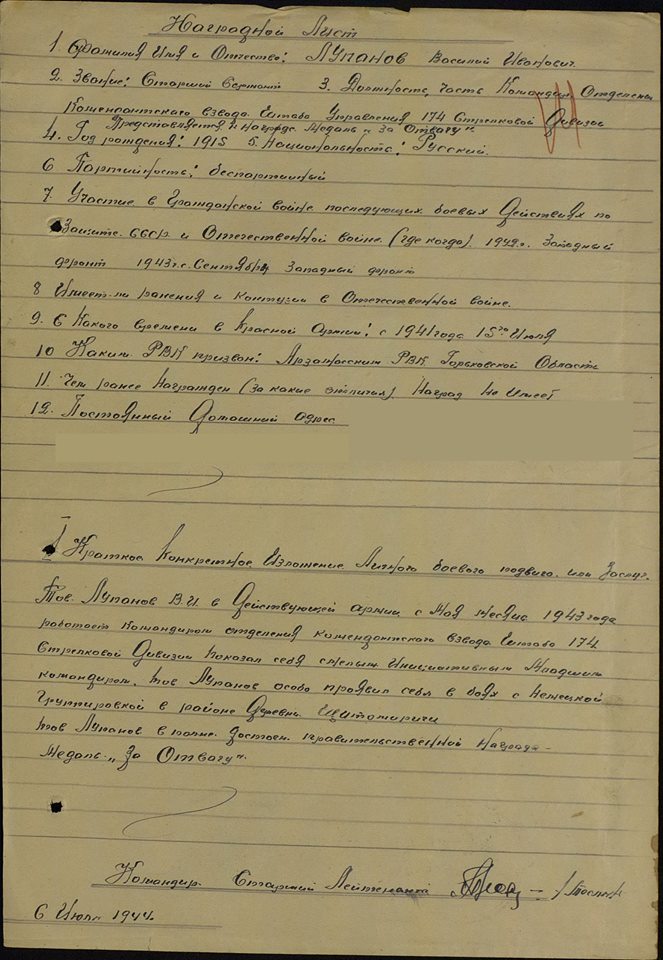 Наградной Лист
1. Фамилия Имя и Отчество: ЛУПАНОВ Василий Иванович
2. Звание: Старший Сержант 3. Должность, часть Командир Отделения
Комендантского взвода Штаба Управления 174 Стрелковой Дивизии
Представляется к награде Медаль „За Отвагу"
4. Год рождения: 1915 5. Национальность: Русский.
6 Партийность: беспартийный
7. Участие в Гражданской войне последующих боевых Действиях по
Защите СССР и Отечественной войне (где когда) 1942г. Западный
фронт 1943г. с Сентября Западный фронт
8 Имеет-ли ранения и контузии в Отечественной войне.
9. С Какого времени в Красной Армии: с 1941 года 15го Июля
10 Каким РВК призван: Арзамасским РВК Горьковской Область
11. Чем ранее Награжден (за какие отличия) Наград Не Имеет
12. Постоянный Домашний адрес
I Краткое Конкретное Изложение Личного боевого подвига или Заслуг.
Тов. Лупанов В.И. в Действующей армии с Мая Месяца 1943 года
работает Командиром отделения комендантского взвода Штаба 174
Стрелковой Дивизии Показал себя смелым Инициативным Младшим
командиром. Тов Лупанов особо проявил себя в боях с Немецкой
Группировкой в районе Деревни
Тов Лупанов в полне достоен правительственной Награде
Медаль „За Отвагу".
Командир Старший Лейтенант
6 Июля 1944